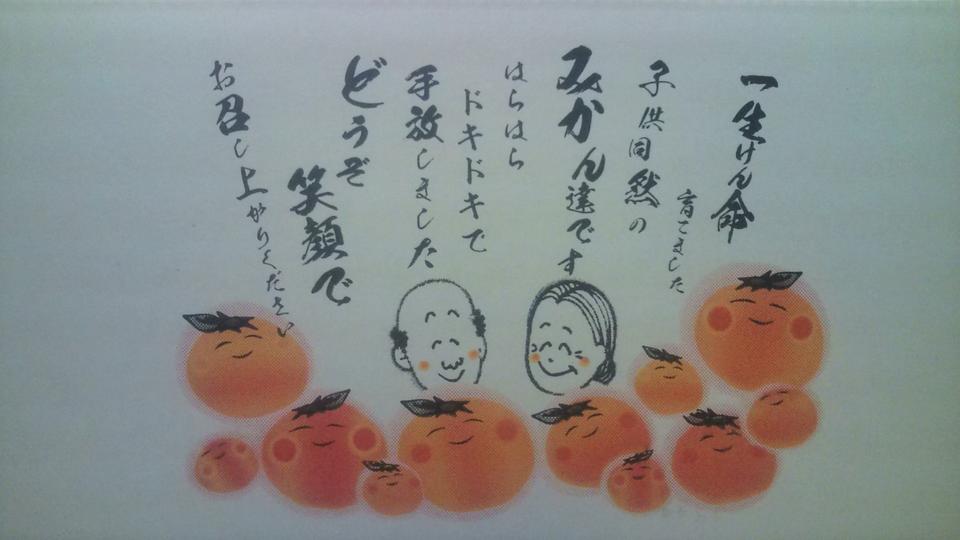 一生けん命
育てました
子供同然の
みかん達です
はらはら
ドキドキで
手放しました
どうぞ
笑顔で
お召し上がりください